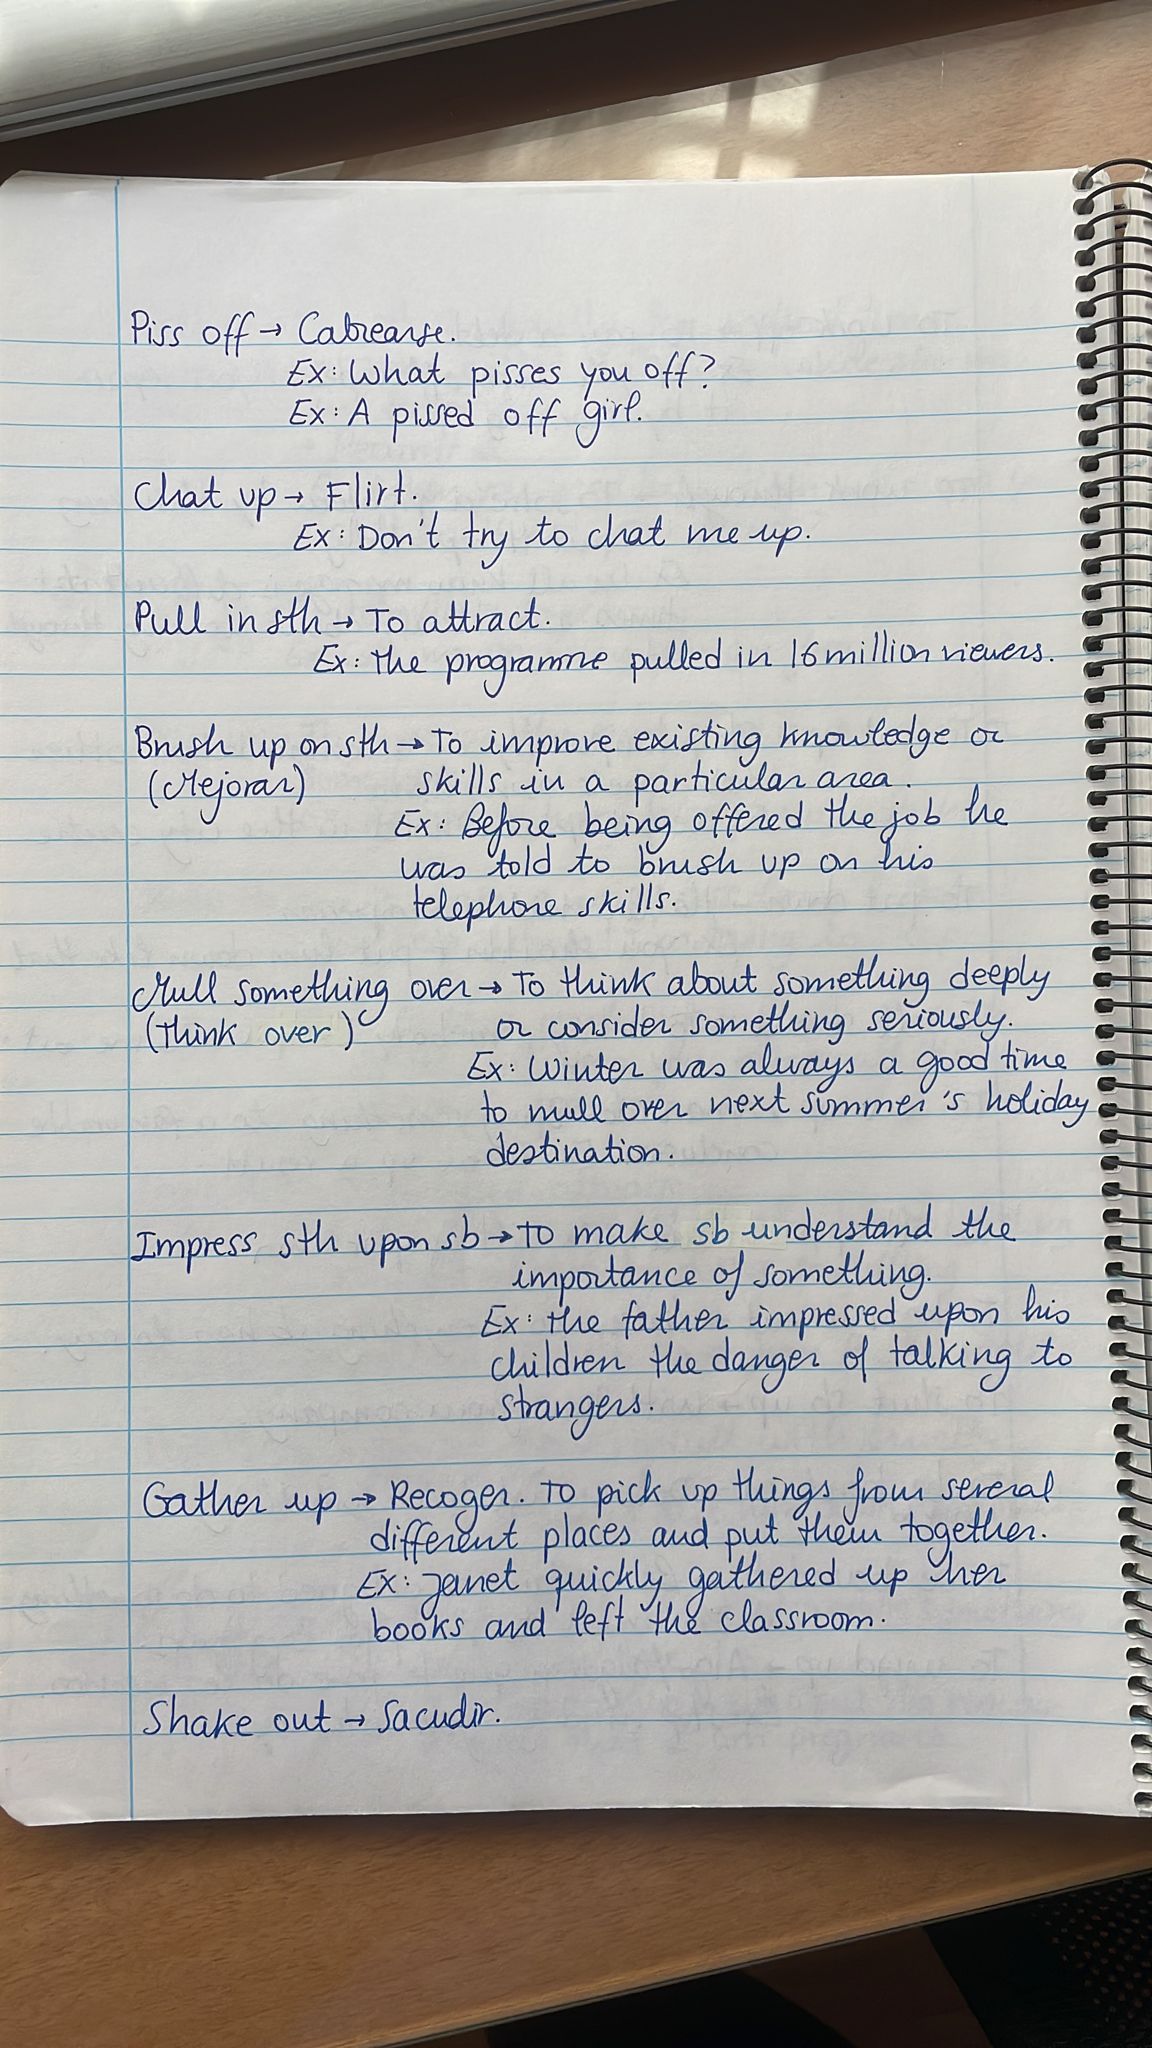 Piss off → Cabrearse.
Ex: What pisses you off?
Ex: A pissed off girl.
Chat up → Flirt.
Ex: Don't try to chat me up.
Pull in sth → To attract.
Ex: The programme pulled in 16 million viewers.
Brush up on sth → To improve existing knowledge or
(Mejorar) skills in a particular area.
Ex: Before being offered the job he
was told to brush up on his
telephone skills.
Mull something over → To think about something deeply
(Think over) or consider something seriously.
Ex: Winter was always a good time
to mull over next summer's holiday
destination.
Impress sth upon sb → To make sb understand the
importance of something.
Ex: The father impressed upon his
children the danger of talking to
strangers.
Gather up → Recoger. To pick up things from several
different places and put them together.
Ex: Janet quickly gathered up her
books and left the classroom.
Shake out → Sacudir.